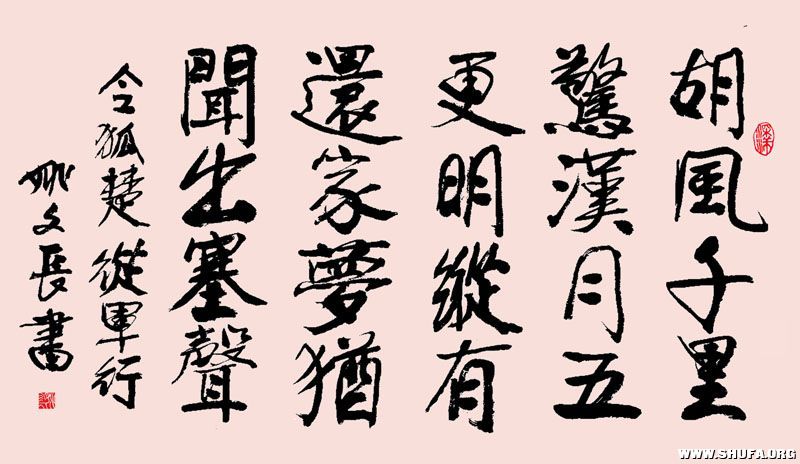 胡風千里
驚漢月五
更明縱有
還家夢猶
聞出塞聲
令狐楚從軍行
姚文長書
WWW.SHUFA.ORG